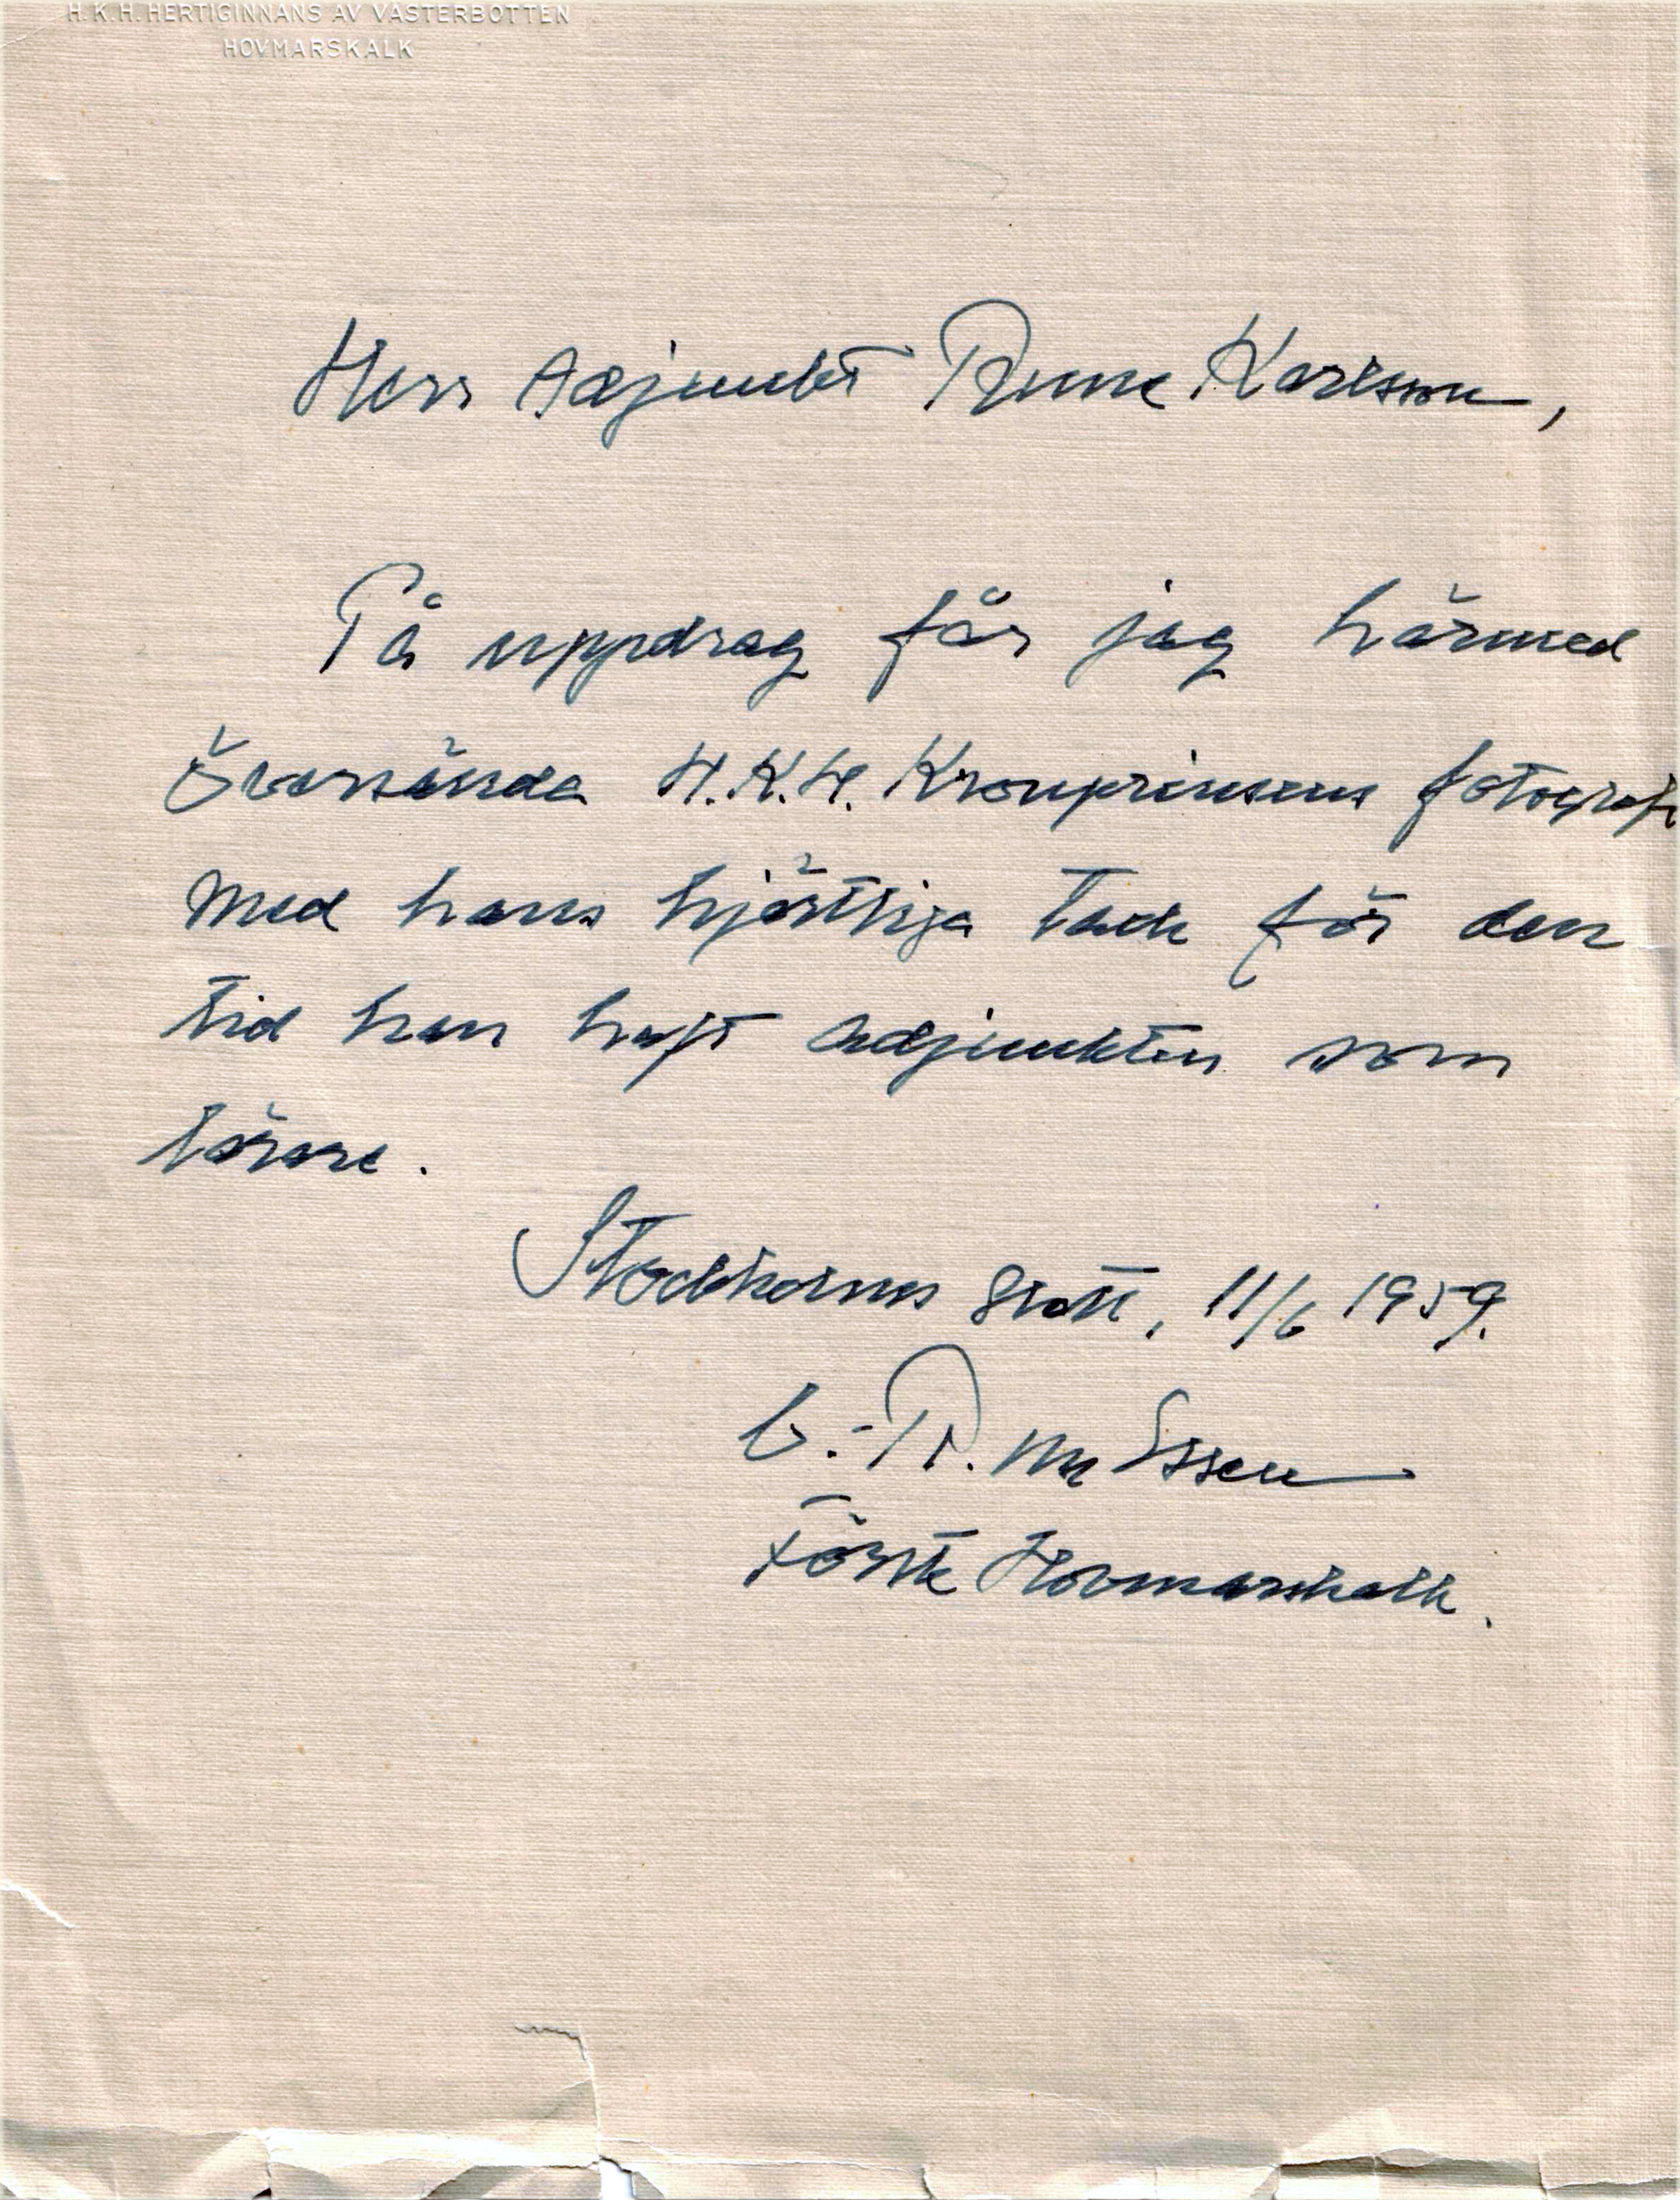 H.K.H. HERTIGINNANS AV VÄSTERBOTTEN
HOVMARSKALK
Herr Adjunkt Rune Karlsson,
På uppdrag får jag härmed
översända H.K.H. Kronprinsens fotografi
med hans hjärtliga tack för den
tid han haft adjunkten som
lärare.
Stockholms Slott, 11/6 1959.
C.-R. von Essen
Förste Hovmarskalk.